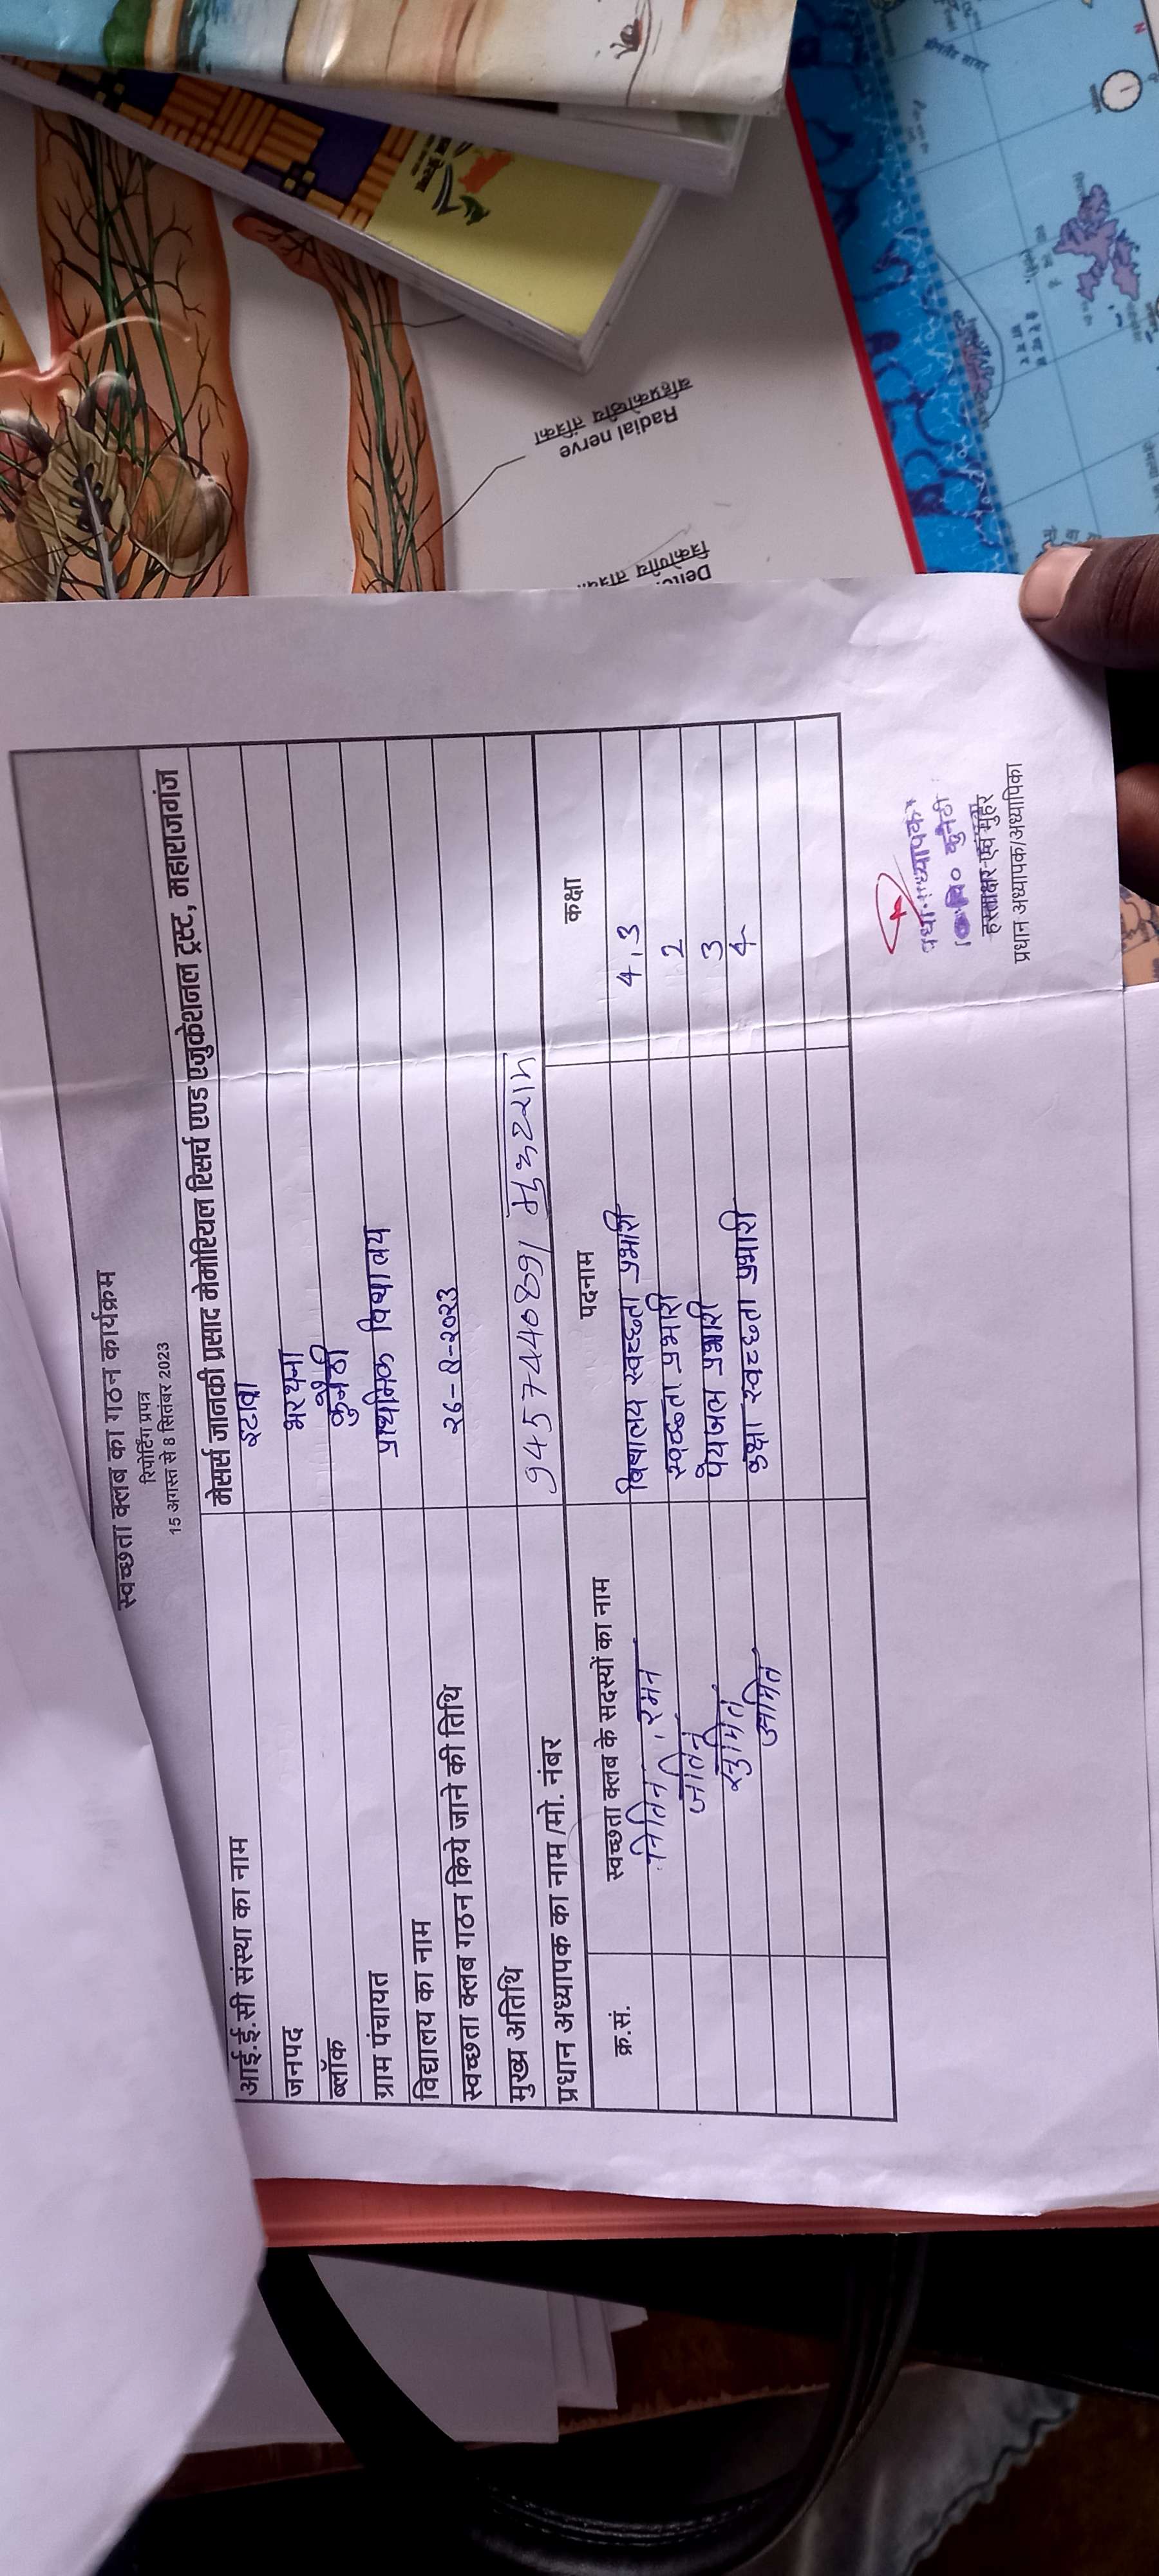 स्वच्छता क्लब का गठन कार्यक्रम
रिपोर्टिंग प्रपत्र
15 अगस्त से 8 सितंबर 2023
आई.ई.सी संस्था का नाम मेसर्स जानकी प्रसाद मेमोरियल रिसर्च एण्ड एजुकेशनल ट्रस्ट, महाराजगंज
जनपद इटावा
ब्लॉक भरथना
ग्राम पंचायत कुनैठी
विद्यालय का नाम प्राथमिक विद्यालय
स्वच्छता क्लब गठन किये जाने की तिथि २६-8-२०२३
मुख्य अतिथि
प्रधान अध्यापक का नाम /मो. नंबर 9457440891
क्र.सं. स्वच्छता क्लब के सदस्यों का नाम पदनाम कक्षा
नितिन, रमन विद्यालय स्वच्छता प्रभारी 4,3
स्वच्छता प्रभारी 2
सुमित पेयजल प्रभारी 3
अमित कक्षा स्वच्छता प्रभारी 4
कुनैठी
हस्ताक्षर एवं मुहर
प्रधान अध्यापक/अध्यापिका
Radial nerve
बहिप्रकोष्ठीय तंत्रिका
त्रिकोणीय